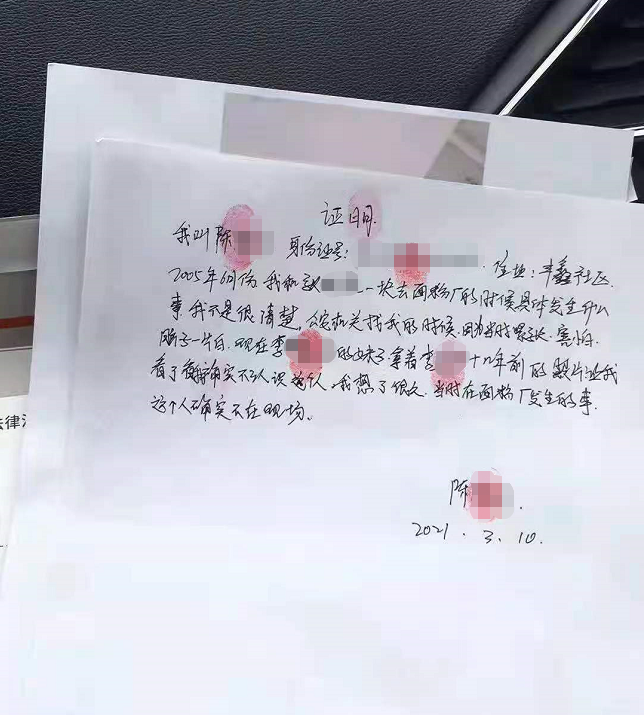 证明
我叫陈 身份证号: 住址:丰鑫社区
2005年6月份我和 一块去面粉厂的时候具体发生什么
事我不是很清楚,公安机关找我的时候,因为当时紧张、害怕
脑子一片白.现在李 的妹子拿着李 十几年前的照片让我
看了我确实不认识这人,我想了很久,当时在面粉厂发生的事.
这个人确实不在现场。
陈
2021.3.10.
法律